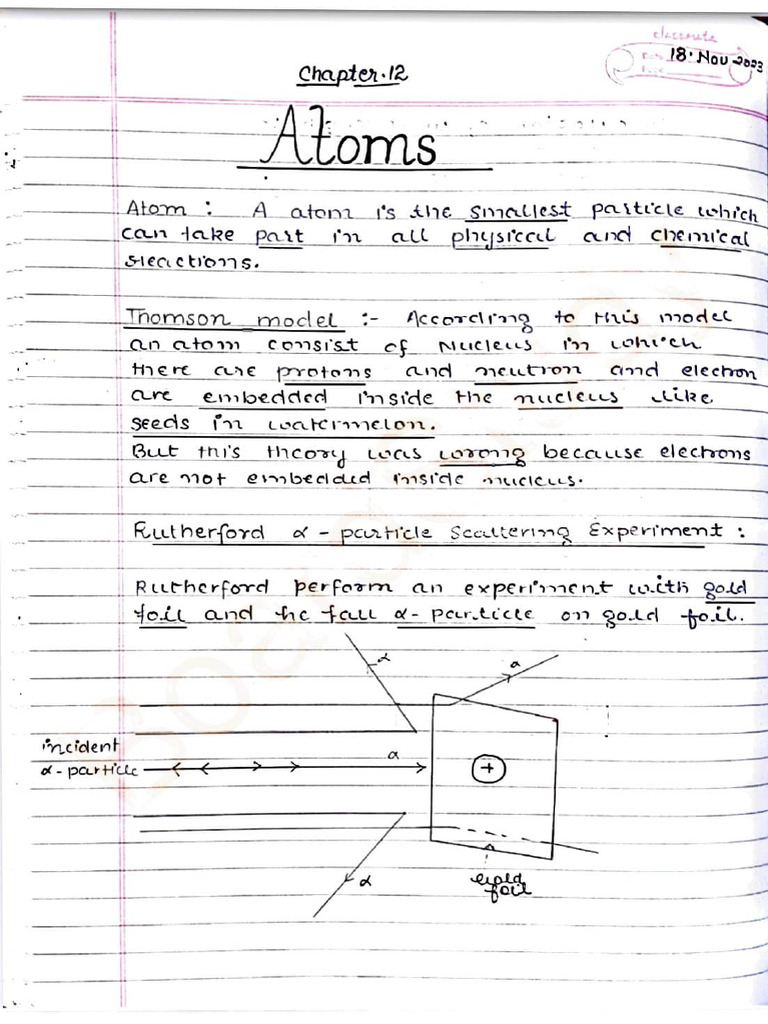 classmate
Date 18. Nov 2023
Page
Chapter.12
Atoms
Atom : A atom is the smallest particle which
can take part in all physical and chemical
reactions.
Thomson model :- According to this model
an atom consist of Nucleus in which
there are protons and neutron and electron
are embedded inside the nucleus like
seeds in watermelon.
But this theory was wrong because electrons
are not embedded inside nucleus.
Rutherford α - particle Scattering Experiment :
Rutherford perform an experiment with gold
foil and he fall α- particle on gold foil.
α
α
incident
α
α - particle
+
α
gold
foil